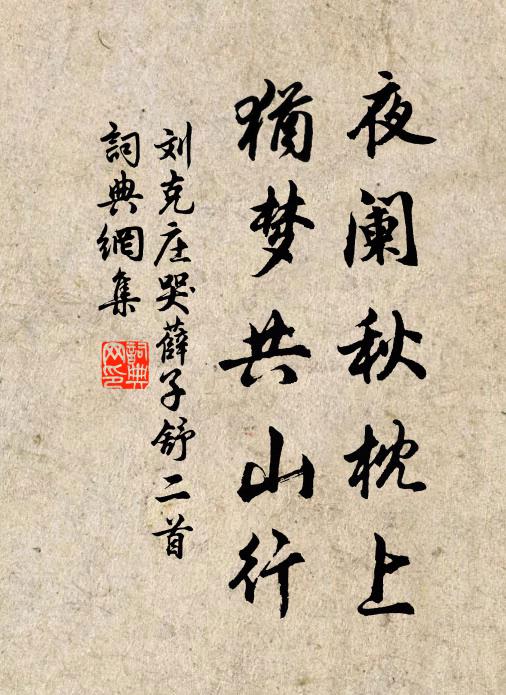 夜阑秋枕上
犹梦共山行
刘克庄哭薛子舒二首
词典网集
詞典网印